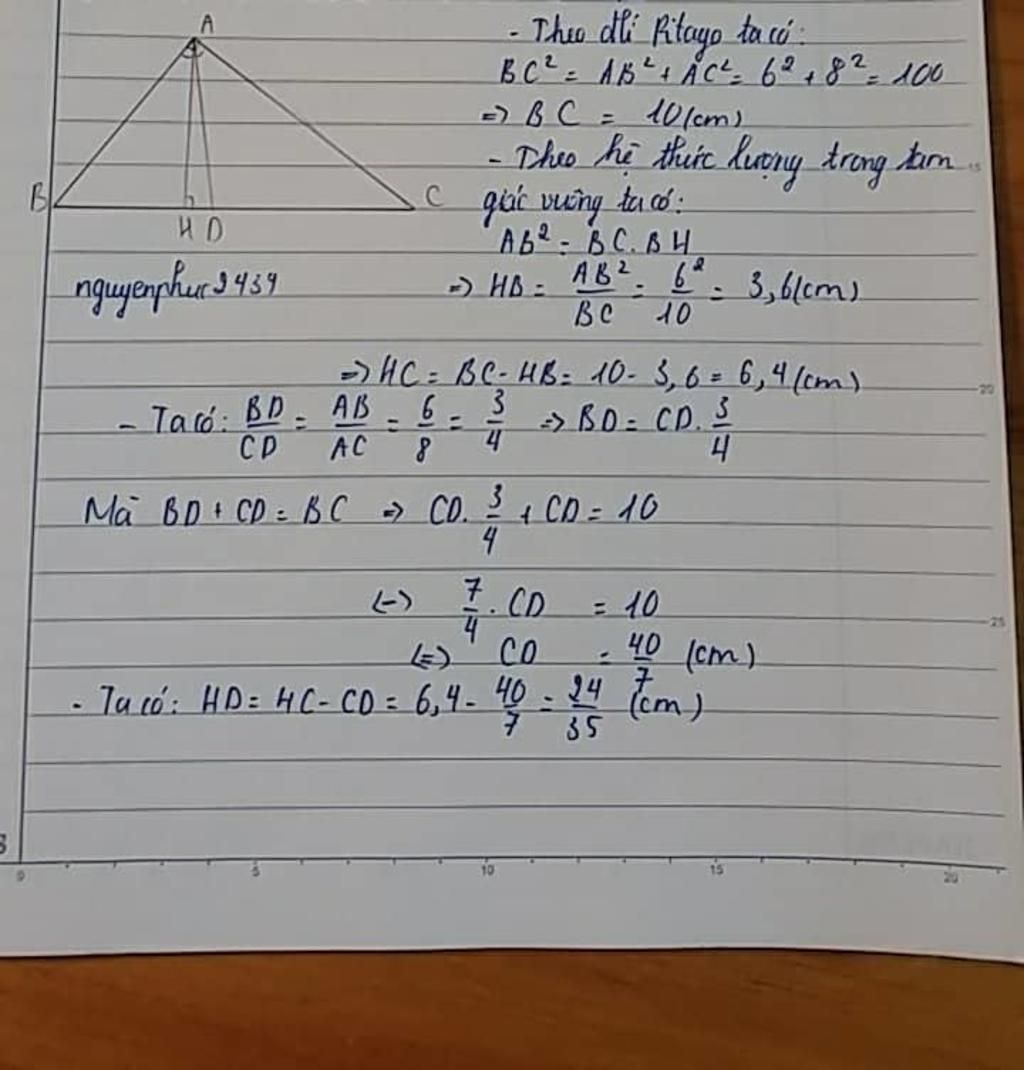 A
B
C
H D
nguyenphuc2439
- Theo đli Pitago ta có:
BC² = AB² + AC² = 6² + 8² = 100
=> BC = 10(cm)
- Theo hệ thức lượng trong tam
giác vuông ta có:
AB² = BC.BH
=> HB = AB²/BC = 6²/10 = 3,6(cm)
=> HC = BC - HB = 10 - 3,6 = 6,4(cm)
- Ta có: BD/CD = AB/AC = 6/8 = 3/4 => BD = CD. 3/4
Mà BD + CD = BC => CD. 3/4 + CD = 10
(-) 7/4 . CD = 10
(=) CD = 40/7 (cm)
- Ta có: HD = HC - CD = 6,4 - 40/7 = 24/35 (cm)
15
20
25
0 5 10 15 20